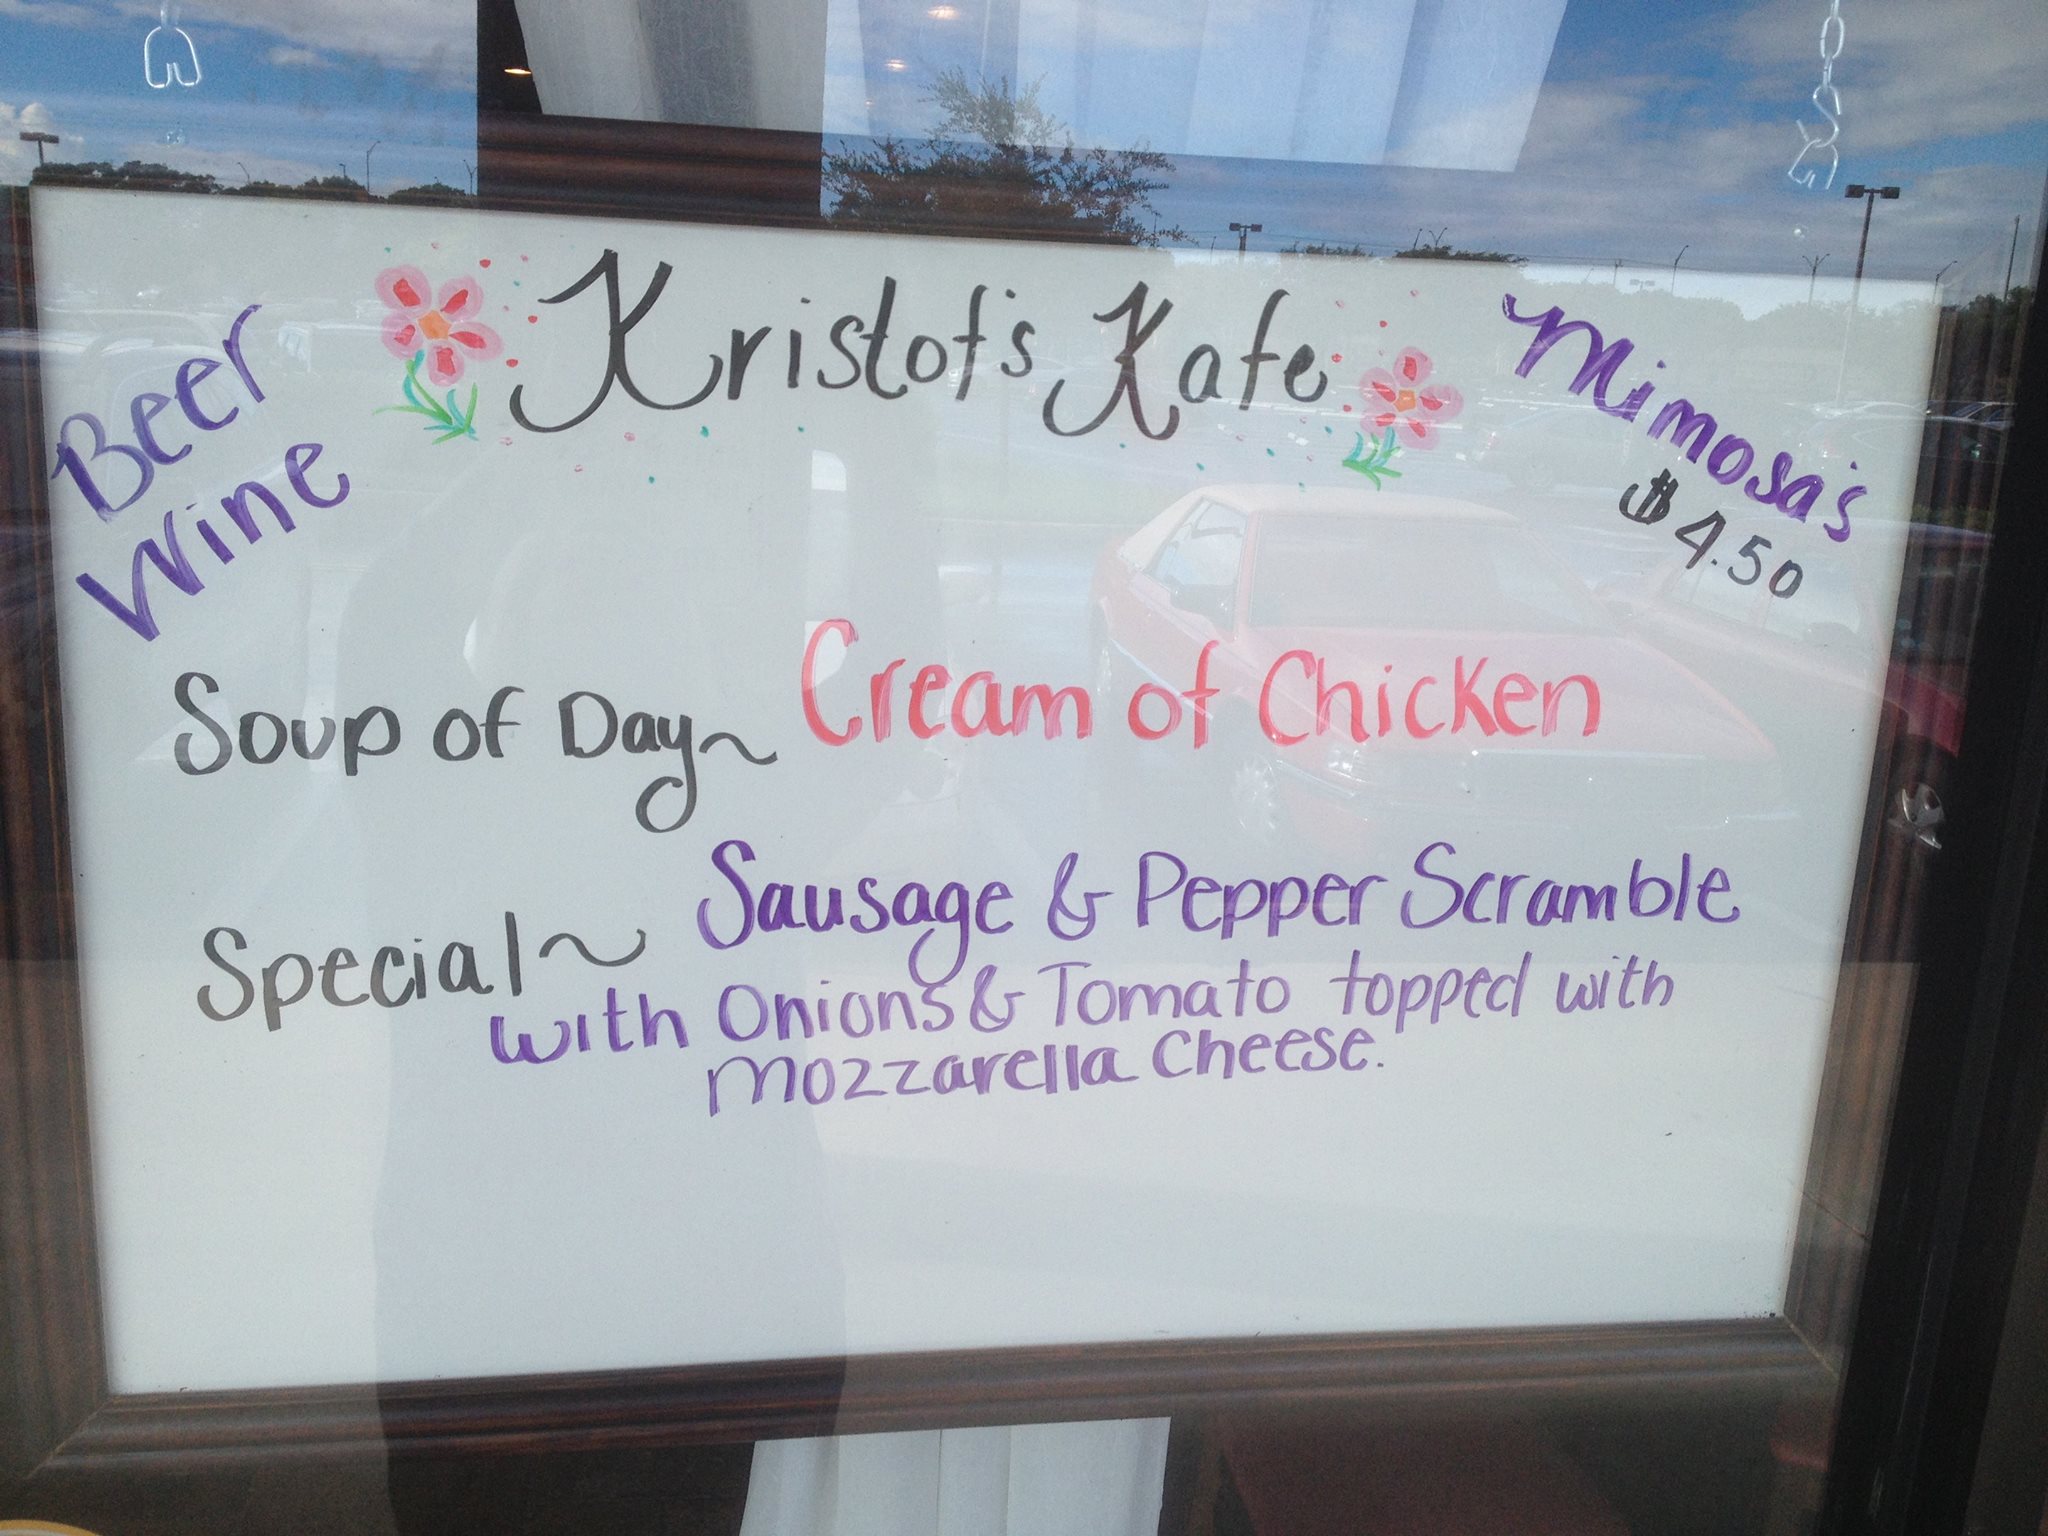 Beer
Wine
Kristof's Kafe
Mimosa's
$4.50
Soup of Day~ Cream of Chicken
Special~ Sausage & Pepper Scramble
with Onions & Tomato topped with
Mozzarella Cheese.